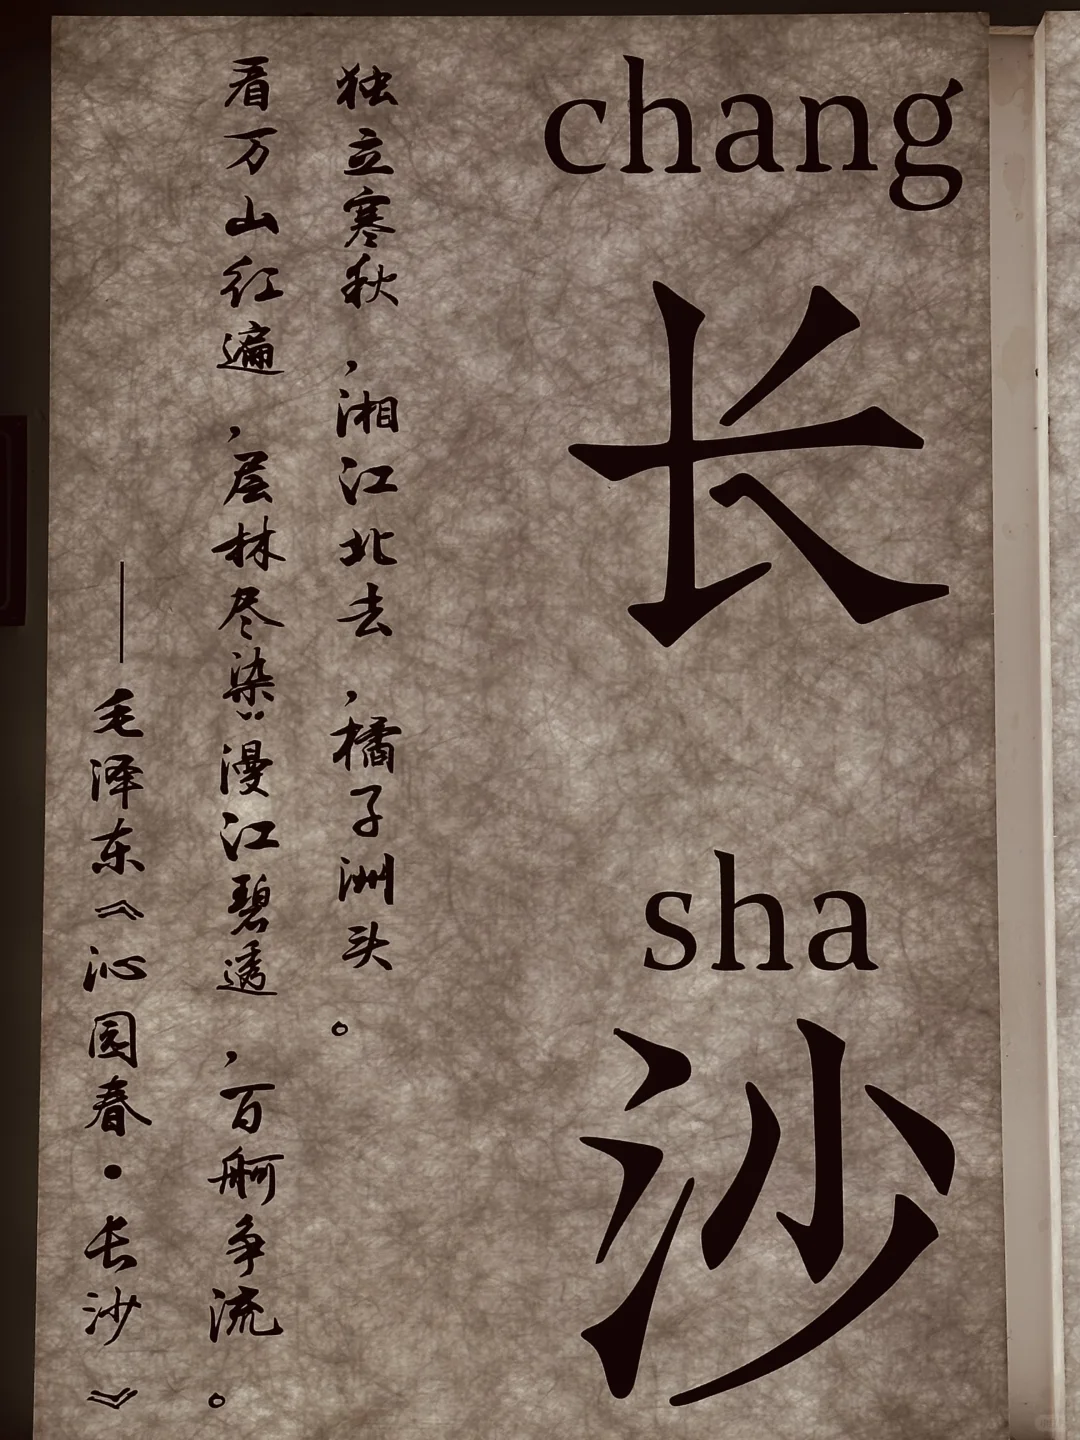 chang
长
sha
沙
独立寒秋，湘江北去，橘子洲头。
看万山红遍，层林尽染；漫江碧透，百舸争流。
——毛泽东《沁园春·长沙》